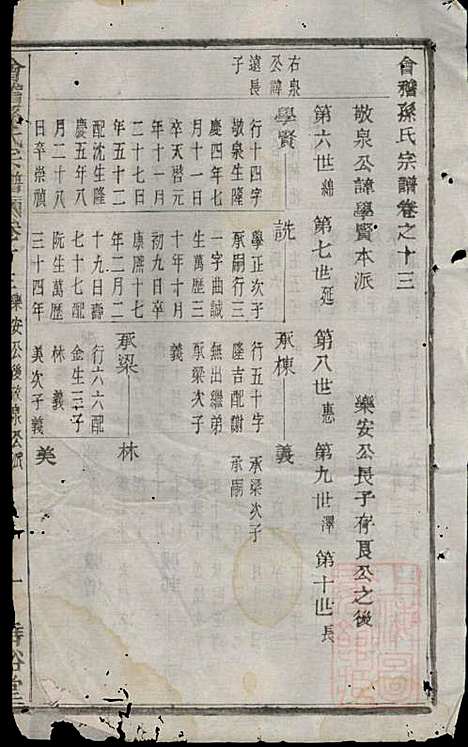 會稽孫氏宗譜卷之十三
敬泉公諱學賢本派 樂安公長子存良公之後
第六世綿 第七世延 第八世惠 第九世澤 第十世長
右泉
公諱
遠長
子
學賢 詵 承棟 義
行十四字 學正次子 行五十字 承梁次子
敬泉生隆 承嗣行三 隆吉配謝 承嗣
慶四年七 一字曲誠 無出繼弟
月十一日 生萬歷三 承梁次子
卒天啓元 十年十月 義
年十一月 初九日卒
二十七日 康熙十七 承梁 林
年五十二 年二月二
配沈生隆 十九日壽 行六六配
慶五年八 七十七配 金生三子
月二十八 阮生萬歷 林 義
日卒崇禎 三十四年 美次子義 美